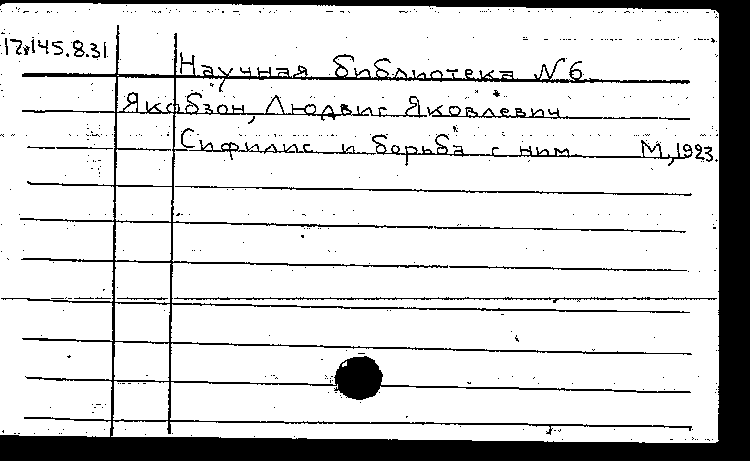 17.145.8.31
Научная библиотека №6
Якобзон, Людвиг Яковлевич
Сифилис и борьба с ним М., 1923.